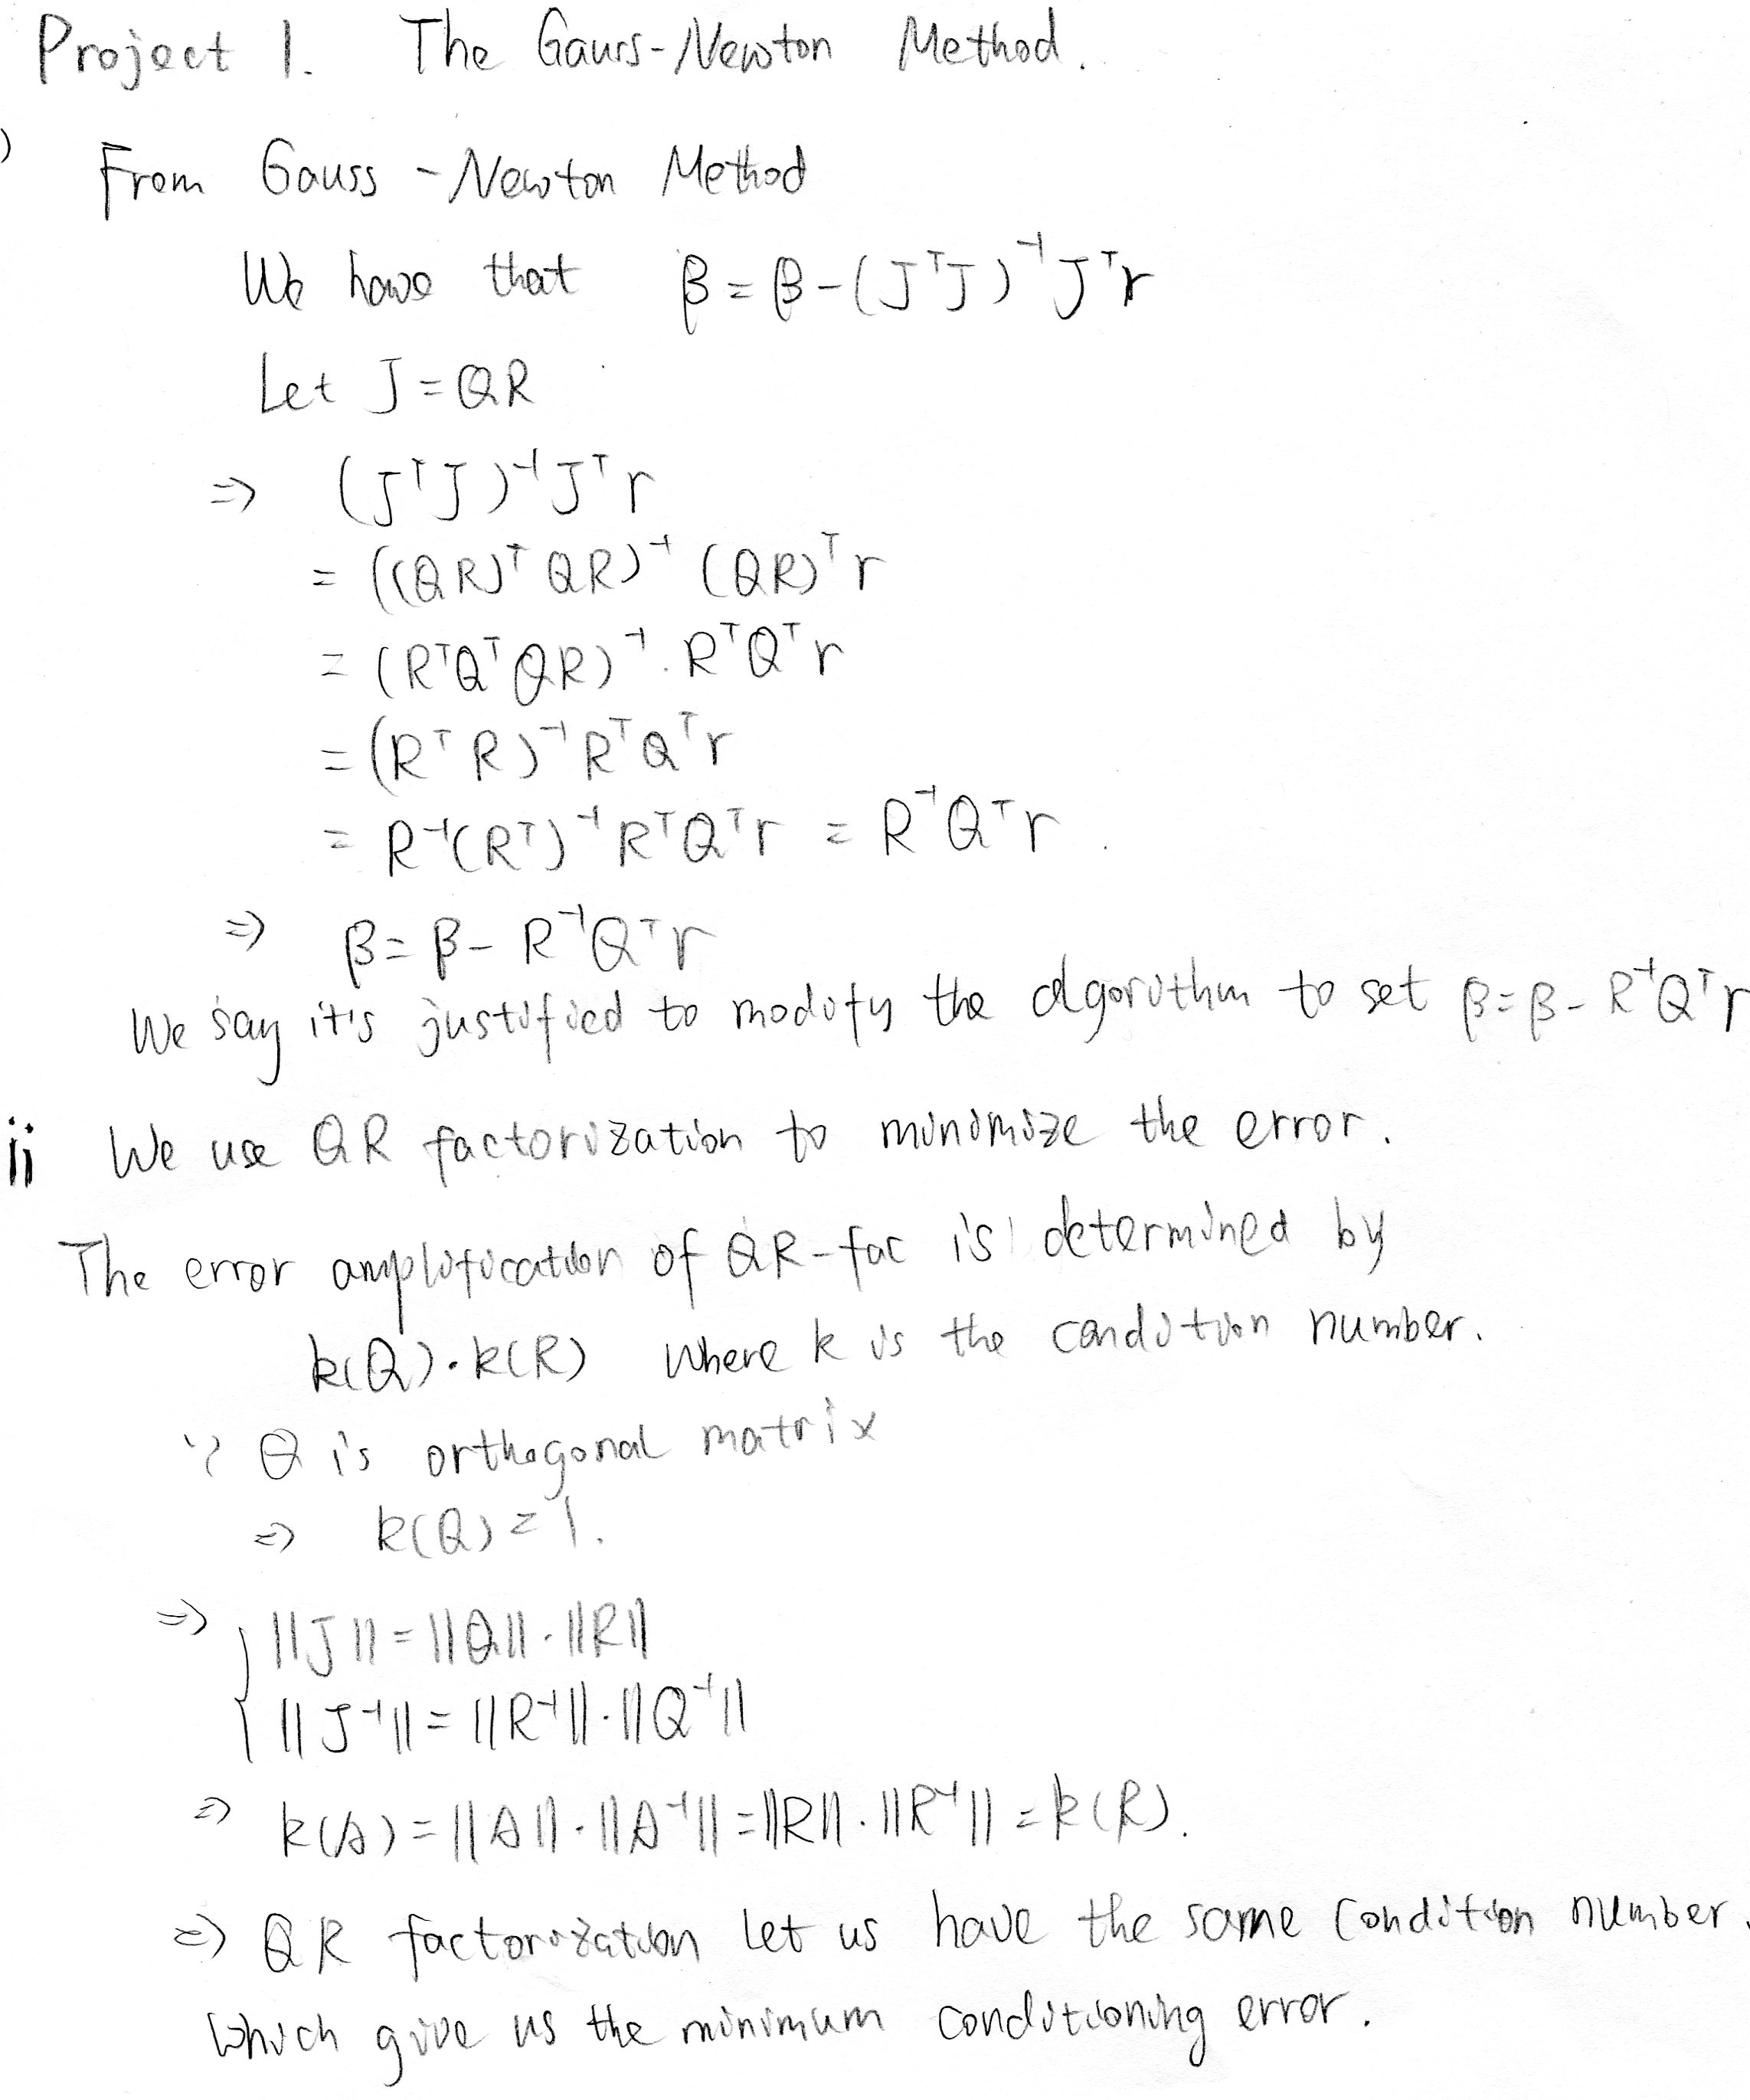 Project 1. The Gauss-Newton Method.
) From Gauss-Newton Method
We have that β = β - (JᵀJ)⁻¹Jᵀr
Let J = QR
⇒ (JᵀJ)⁻¹Jᵀr
= ((QR)ᵀQR)⁻¹ (QR)ᵀr
= (RᵀQᵀQR)⁻¹. RᵀQᵀr
= (RᵀR)⁻¹RᵀQᵀr
= R⁻¹(Rᵀ)⁻¹RᵀQᵀr = R⁻¹Qᵀr.
⇒ β = β - R⁻¹Qᵀr
We say it's justified to modify the algorithm to set β = β - R⁻¹Qᵀr
ii We use QR factorization to minimize the error.
The error amplification of QR-fac is determined by
k(Q)·k(R) where k is the condition number.
∵ Q is orthogonal matrix
⇒ k(Q) = 1.
⇒ { ||J|| = ||Q||·||R||
||J⁻¹|| = ||R⁻¹||·||Q⁻¹||
⇒ k(A) = ||A||·||A⁻¹|| = ||R||·||R⁻¹|| = k(R).
⇒ QR factorization let us have the same condition number.
which give us the minimum conditioning error.